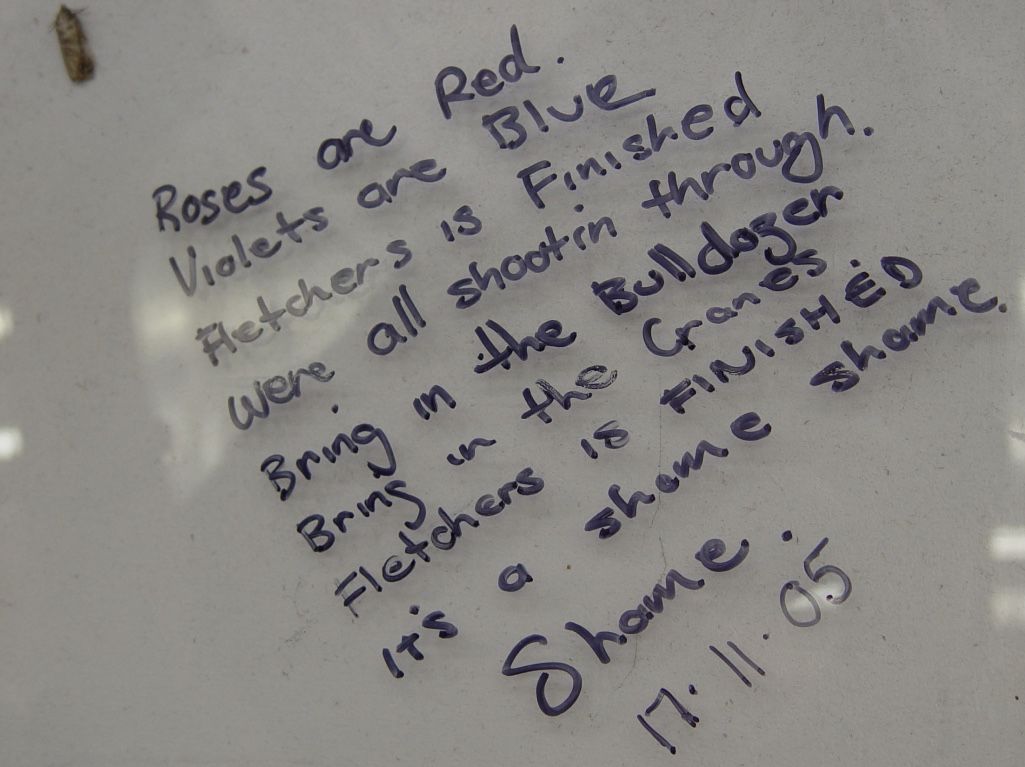 Roses are Red.
Violets are Blue
Fletchers is Finished
were all shootin through.
Bring in the Bulldozer
Bring in the Cranes
Fletchers is FINISHED
It's a shame shame.
Shame.
17.11.05